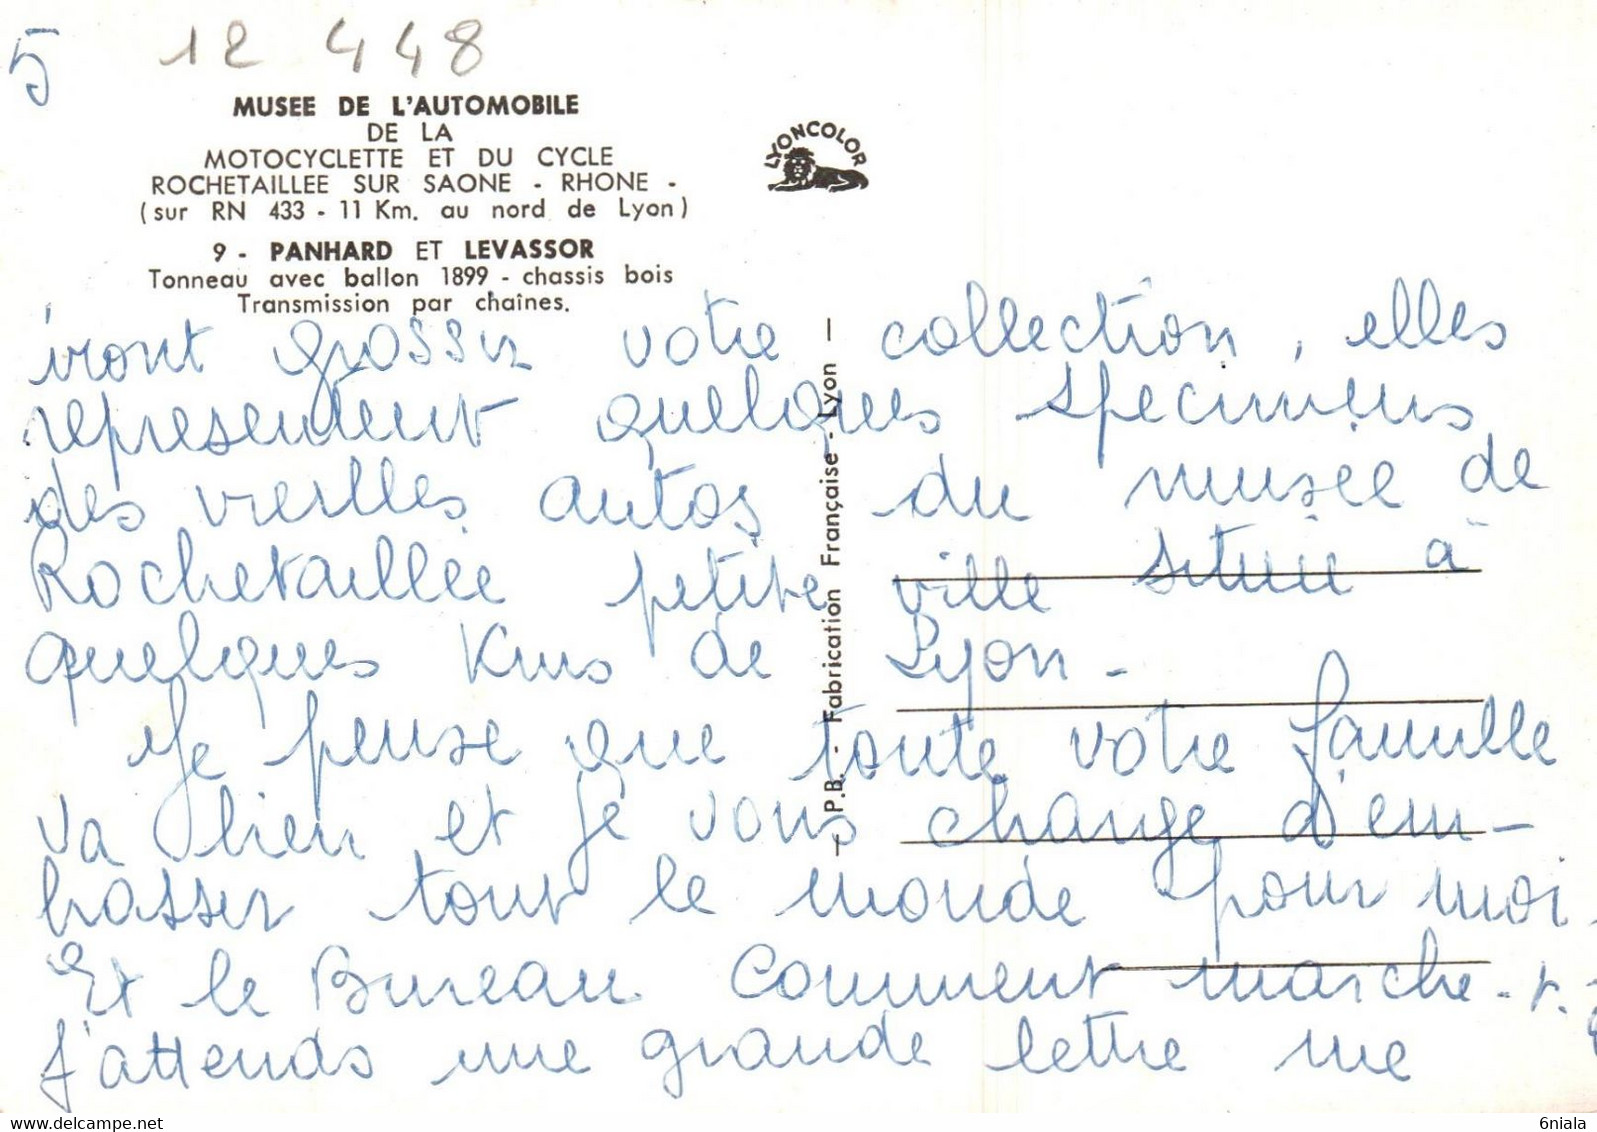 5
12 448
MUSEE DE L'AUTOMOBILE
DE LA
MOTOCYCLETTE ET DU CYCLE
ROCHETAILLEE SUR SAONE - RHONE -
(sur RN 433 - 11 Km. au nord de Lyon)
9 - PANHARD ET LEVASSOR
Tonneau avec ballon 1899 - chassis bois
Transmission par chaînes.
LYONCOLOR
— P.B. - Fabrication Française - Lyon —
iront grossir votre collection, elles
representent quelques specimens
des vieilles autos du musée de
Rochetaillée petite ville située à
quelques Kms de Lyon -
Je pense que toute votre famille
va bien et je vous charge d'em-
brasser tout le monde pour moi.
Et le Bureau Comment marche-t-
J'attends une grande lettre me
6niala